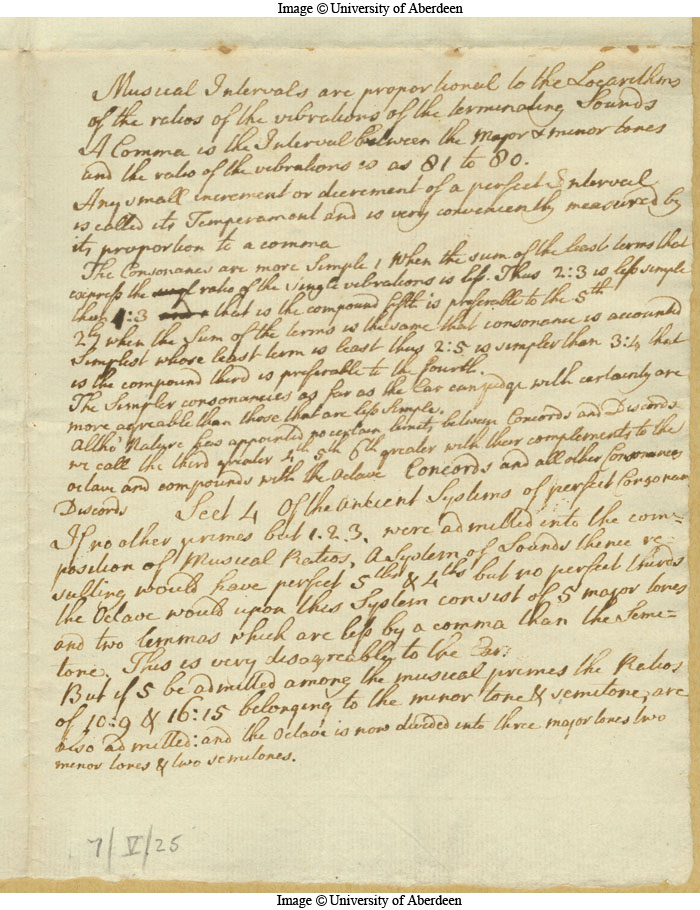 Image © University of Aberdeen
Musical Intervals are proportional to the Logarithms
of the ratios of the vibrations of the terminating Sounds
A Comma is the Interval between the Major & minor tones
and the ratio of the vibrations is as 81 to 80.
Any small increment or decrement of a perfect Interval
is called its Temperament and is very conveniently measured by
its proportion to a comma
The Consonances are more Simple 1 When the sum of the least terms that
express the ratio of the single vibrations is less. Thus 2:3 is less simple
than 1:3 that is the compound fifth is preferable to the 5th
2ly when the Sum of the terms is the same that consonance is accounted
Simplest whose least term is least thus 2:5 is simpler than 3:4 that
is the compound third is preferable to the fourth.
The Simpler consonancies as far as the Ear can judge with certainty are
more agreable than those that are less simple.
Altho' Nature has appointed no certain limits between Concords and Discords
we call the third greater 4th 5th 6th greater with their complements to the
octave and compounds with the Octave Concords and all other Consonances
Discords Sect 4 Of the Antient Systems of perfect Consonan
If no other primes but 1.2.3. were admitted into the com=
position of Musical Ratios, A System of Sounds thence re
sulting would have perfect 5ths & 4ths but no perfect thirds
the Octave would upon this System consist of 5 major tones
and two lemmas which are less by a comma than the Semi=
tone. This is very disagreable to the Ear.
But if 5 be admitted among the musical primes the Ratios
of 10:9 & 16:15 belonging to the minor tone & semitone, are
also admitted: and the Octave is now divided into three major tones two
minor tones & two semitones.
7/V/25
Image © University of Aberdeen